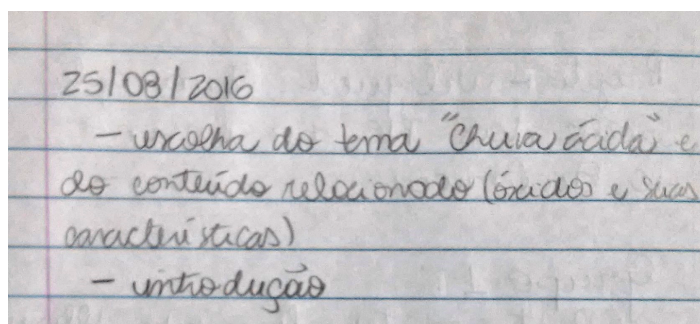 25/08/2016
- escolha do tema "Chuva ácida" e
do conteúdo relacionado (óxidos e suas
características)
- introdução